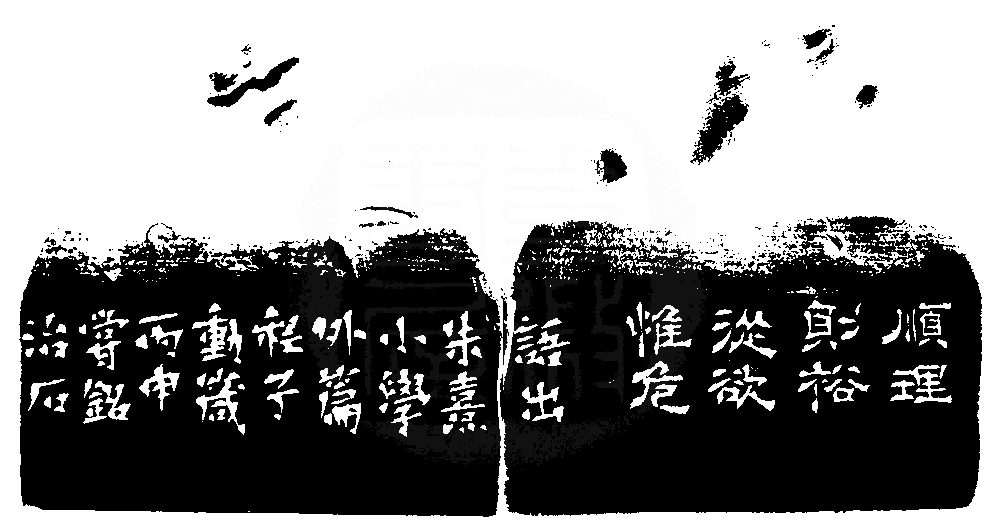 順理
則裕
從欲
惟危
語出
朱熹
小學
外篇
程子
動箴
丙申
嘗銘
治石